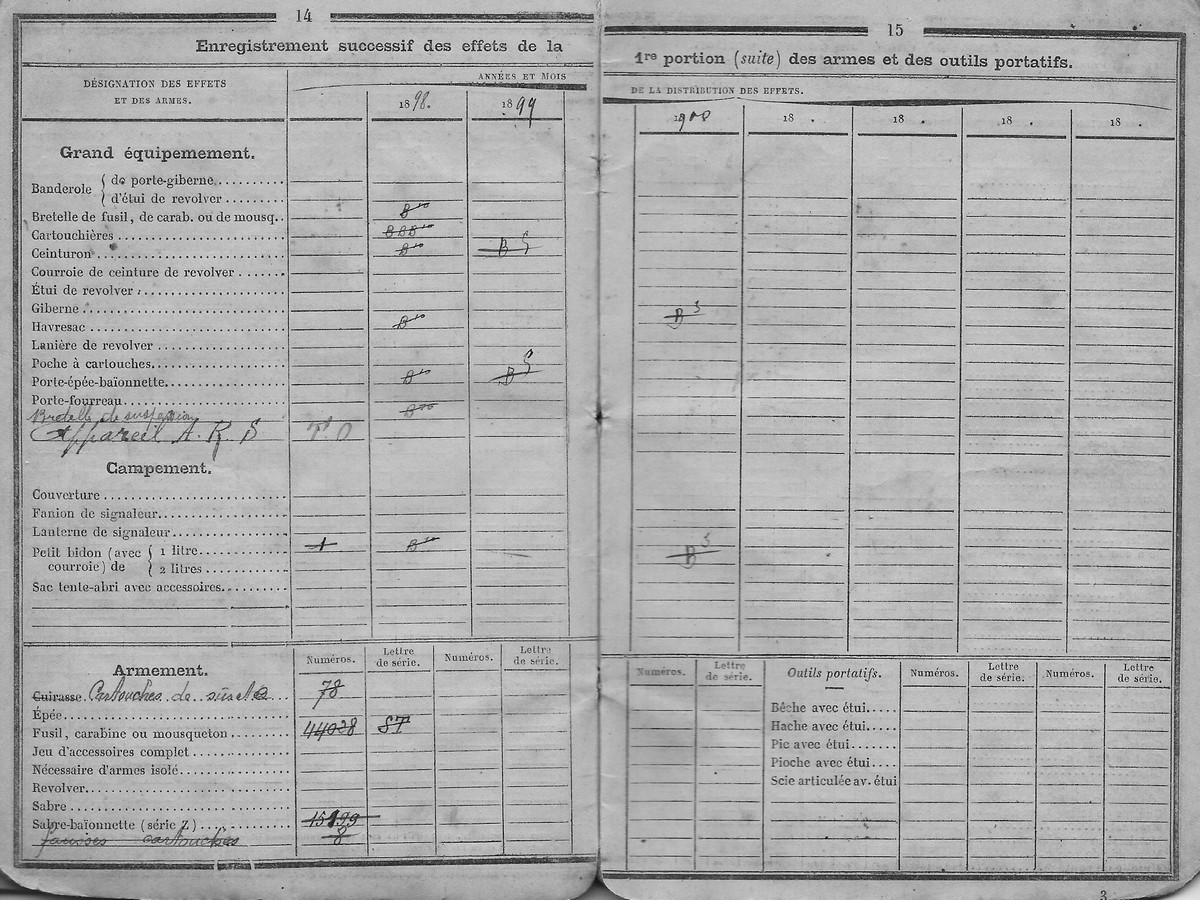 14
Enregistrement successif des effets de la
DÉSIGNATION DES EFFETS
ET DES ARMES.
ANNÉES ET MOIS
1898.
1899
Grand équipemement.
Banderole { de porte-giberne
{ d'étui de revolver
Bretelle de fusil, de carab. ou de mousq. B
Cartouchières BBB
Ceinturon B B
Courroie de ceinture de revolver
Étui de revolver
Giberne
Havresac B
Lanière de revolver
Poche à cartouches
Porte-épée-baïonnette B B
Porte-fourreau
Bretelle de suspension
Appareil A. R. S
Campement.
Couverture
Fanion de signaleur
Lanterne de signaleur
Petit bidon (avec { 1 litre 1 B
courroie) de { 2 litres
Sac tente-abri avec accessoires
Armement.
Numéros. Lettre de série. Numéros. Lettre de série.
Cuirasse Cartouches de sureté 78
Épée
Fusil, carabine ou mousqueton 44028 ST
Jeu d'accessoires complet
Nécessaire d'armes isolé
Revolver
Sabre
Sabre-baïonnette (série Z)
fausses cartouches 8
15
1re portion (suite) des armes et des outils portatifs.
DE LA DISTRIBUTION DES EFFETS.
1900 18 . 18 . 18 . 18 .
B 5
B 5
Numéros. Lettre de série. Outils portatifs. Numéros. Lettre de série. Numéros. Lettre de série.
Bêche avec étui
Hache avec étui
Pic avec étui
Pioche avec étui
Scie articulée av. étui
3